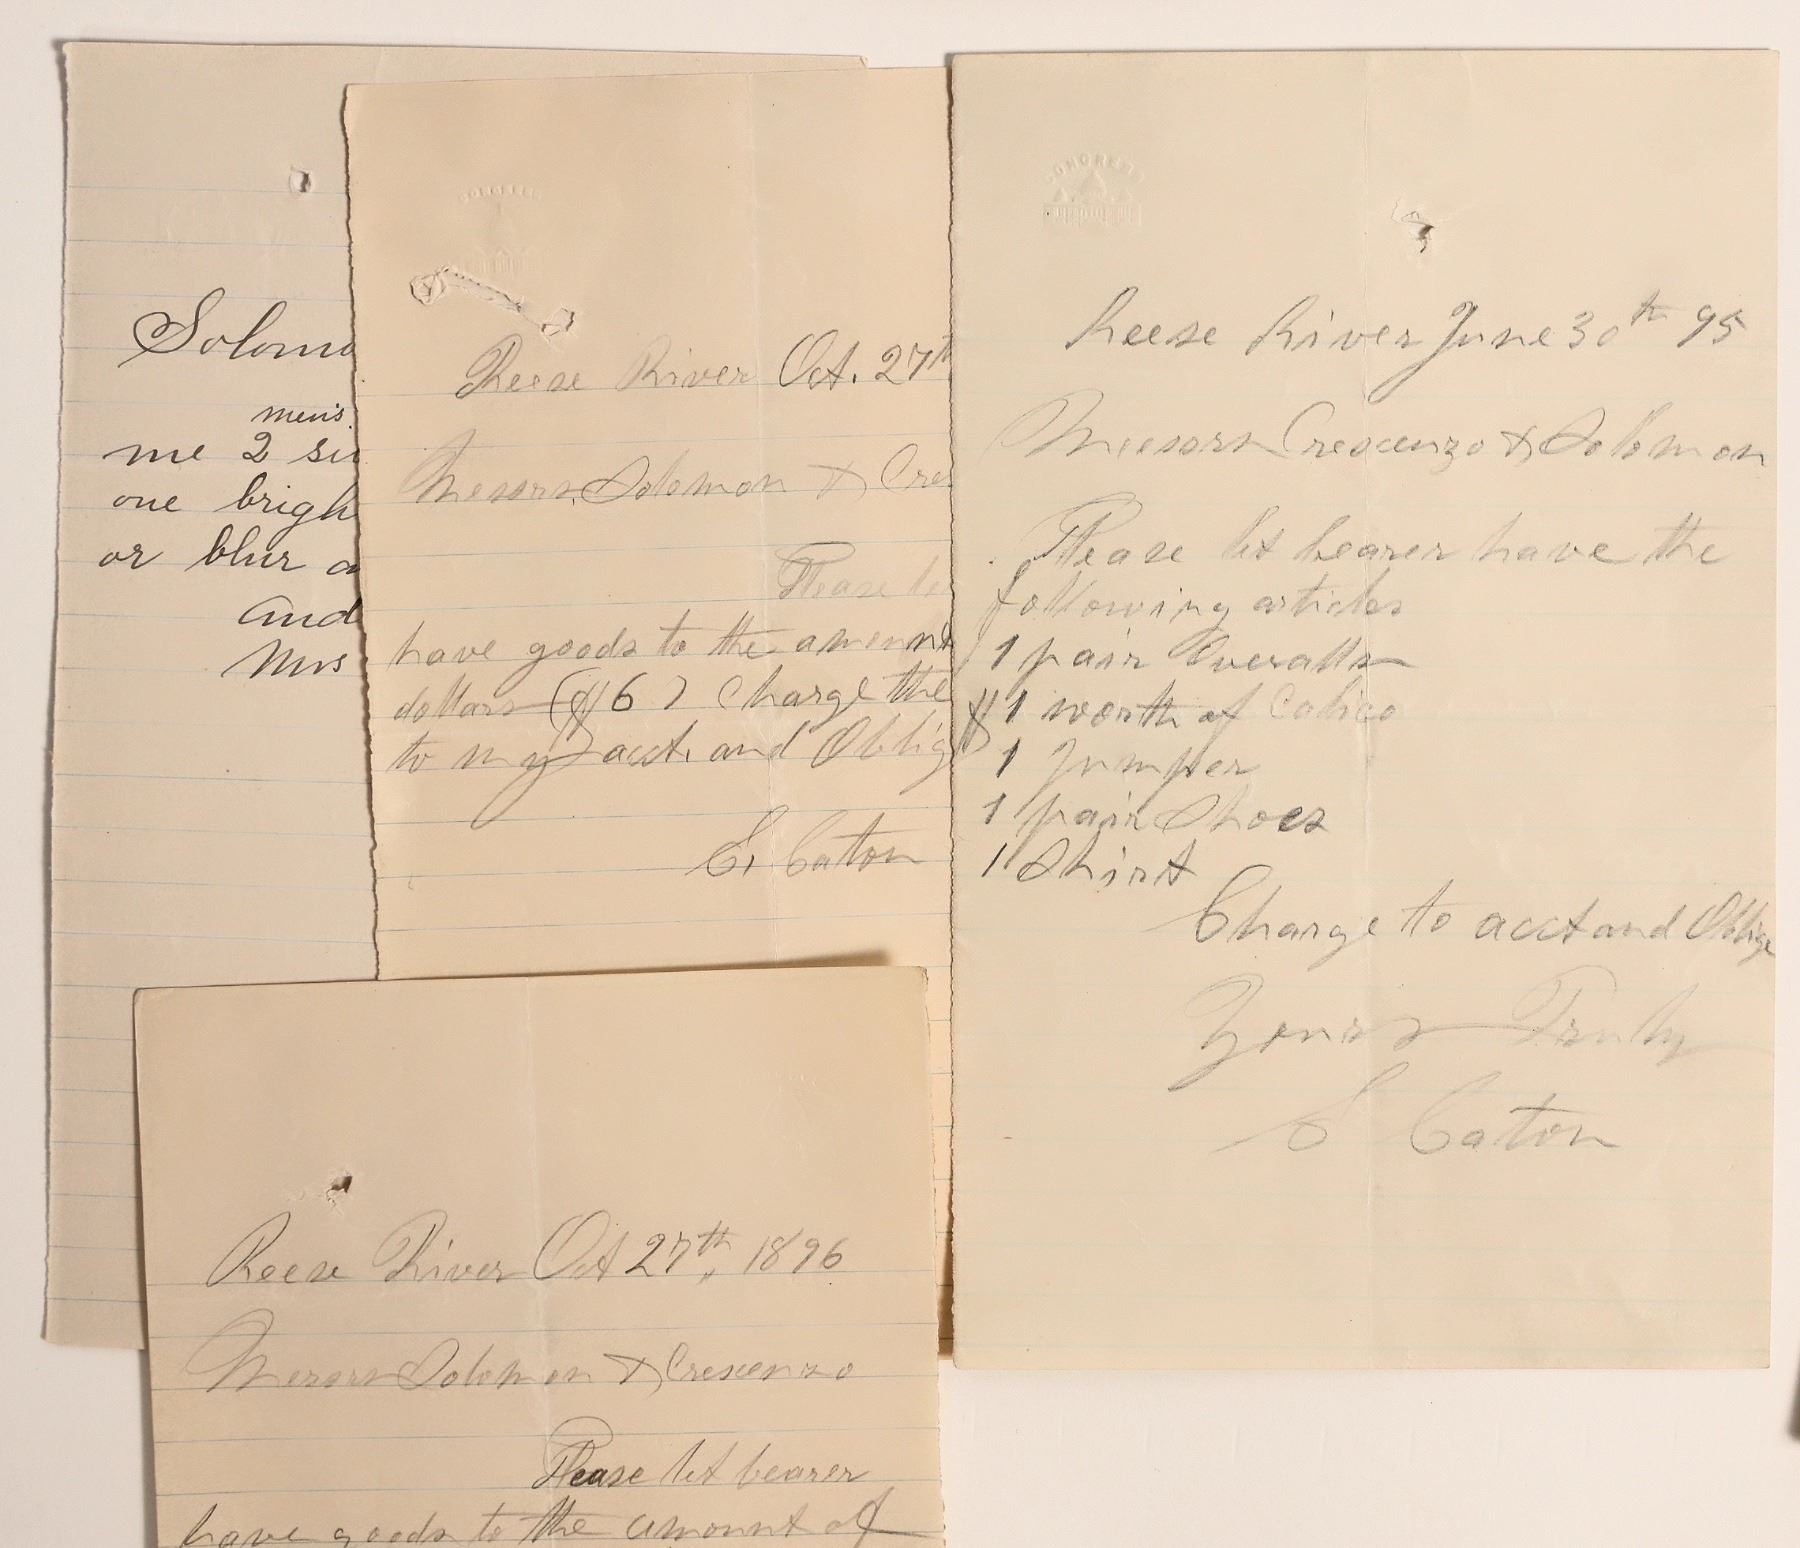 Solomo
men's
me 2 su
one brigh
or blur a
and
Mrs
Reese River Oct. 27th
Messrs. Solomon & Cres
Please le
have goods to the amount
dollars ($6) Charge the
to my acct. and Oblig
S. Caton
CONGRESS
Reese River June 30th 95
Messrs Crescenzo & Solomon
Please let bearer have the
following articles
1 pair Overalls
$1 worth of Calico
1 Jumper
1 pair Shoes
1 Shirt
Charge to acct and Oblige
Yours Truly
S Caton
Reese River Oct 27th, 1896
Messrs Solomon & Crescenzo
Please let bearer
have goods to the amount of